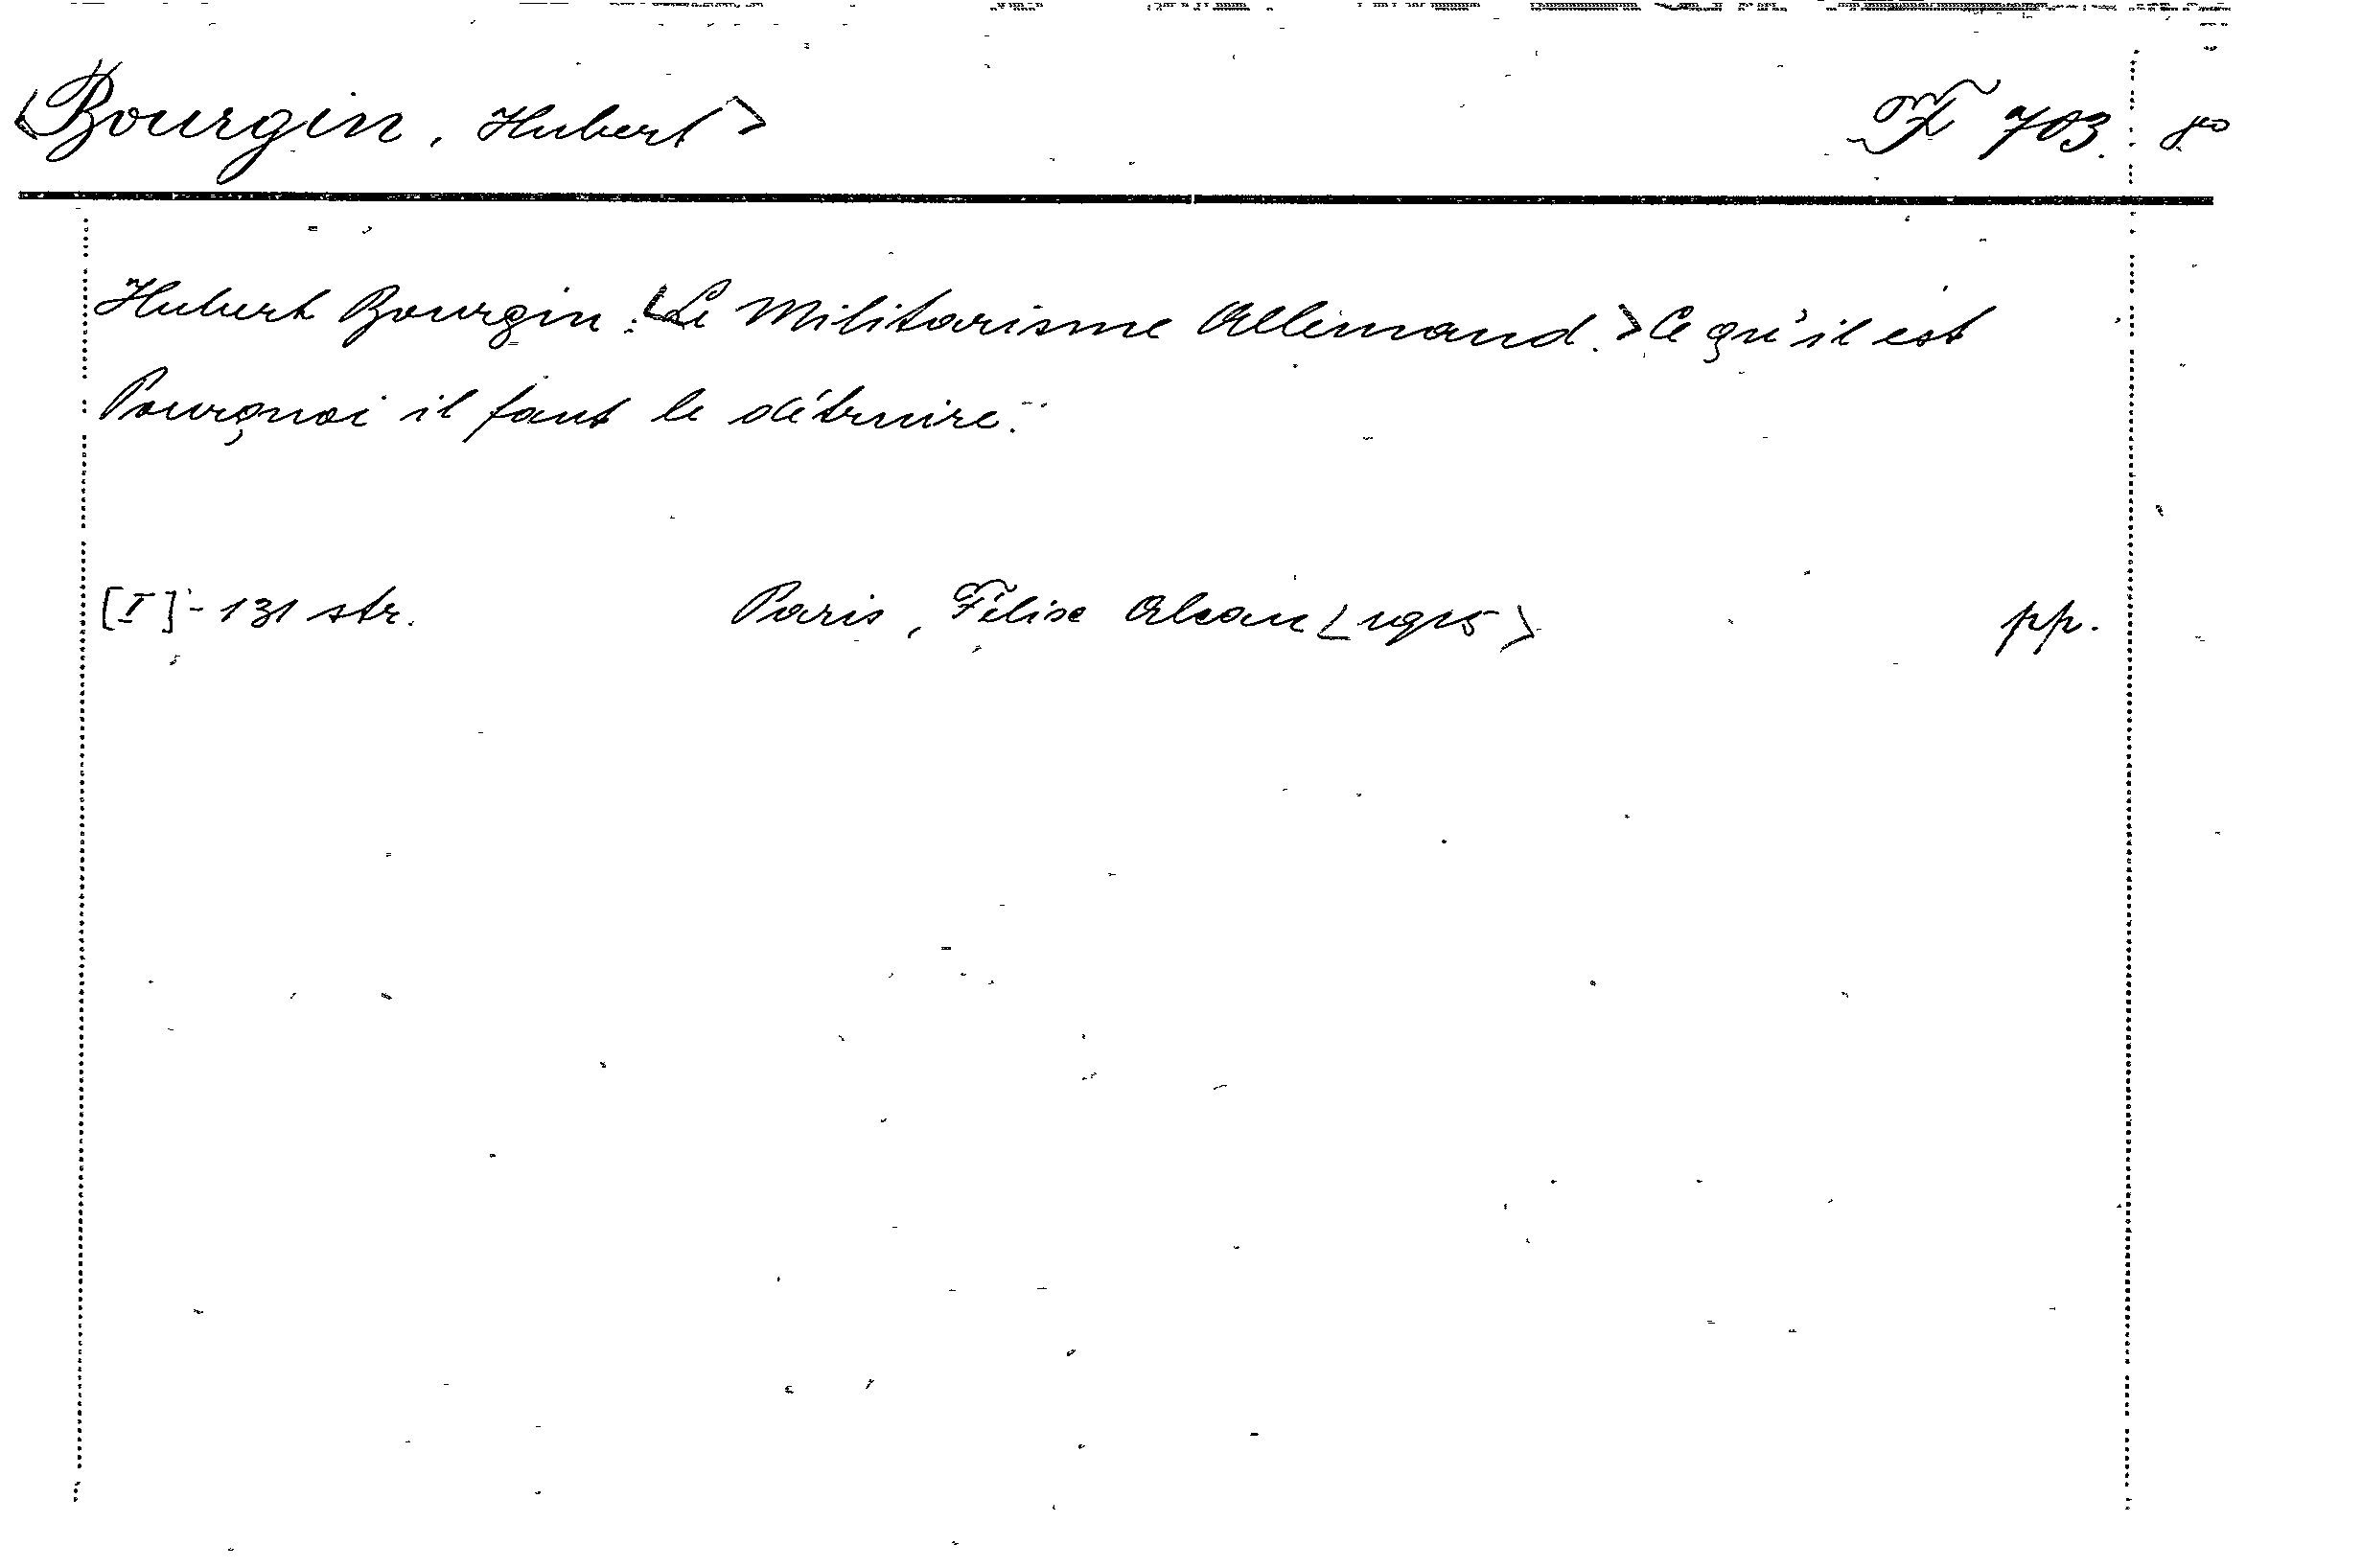 <Bourgin, Hubert> F 703. 8º
Hubert Bourgin: <Le Militarisme Allemand.> Ce qu'il est
Pourquoi il faut le détruire.
[I] - 131 str. Paris, Félix Alcan <1915> pp.